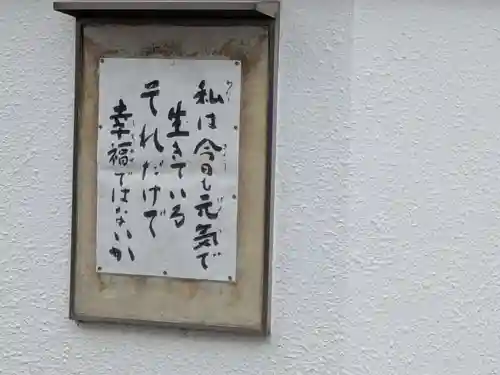 私は今日も元気で
生きている
それだけで
幸福ではないか